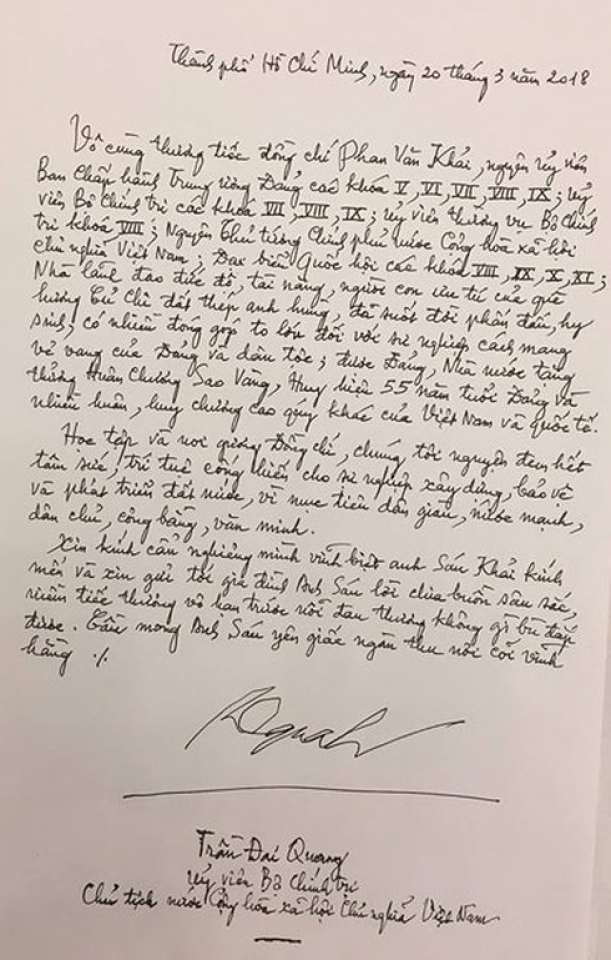 Thành phố Hồ Chí Minh, ngày 20 tháng 3 năm 2018
Vô cùng thương tiếc đồng chí Phan Văn Khải, nguyên Uỷ viên
Ban Chấp hành Trung ương Đảng các khoá V, VI, VII, VIII, IX; Uỷ
viên Bộ Chính trị các khoá VII, VIII, IX; Uỷ viên thường vụ Bộ Chính
trị khoá VIII; Nguyên Thủ tướng Chính phủ nước Cộng hoà xã hội
chủ nghĩa Việt Nam; Đại biểu Quốc hội các khoá VIII, IX, X, XI;
Nhà lãnh đạo đức độ, tài năng, người con ưu tú của quê
hương Củ Chi đất thép anh hùng, đã suốt đời phấn đấu, hy
sinh; có nhiều đóng góp to lớn đối với sự nghiệp cách mạng
vẻ vang của Đảng và dân tộc; được Đảng, Nhà nước tặng
thưởng Huân Chương Sao Vàng, Huy hiệu 55 năm tuổi Đảng và
nhiều huân, huy chương cao quý khác của Việt Nam và Quốc tế.
Học tập và noi gương Đồng chí, chúng tôi nguyện đem hết
tâm sức, trí tuệ cống hiến cho sự nghiệp xây dựng, bảo vệ
và phát triển đất nước, vì mục tiêu dân giàu, nước mạnh,
dân chủ, công bằng, văn minh.
Xin kính cẩn nghiêng mình vĩnh biệt anh Sáu Khải kính
mến và xin gửi tới gia đình Anh Sáu lời chia buồn sâu sắc,
niềm tiếc thương vô hạn trước nỗi đau thương không gì bù đắp
được. Cầu mong Anh Sáu yên giấc ngàn thu nơi cõi vĩnh
hằng ./.
Trần Đại Quang
Uỷ viên Bộ Chính trị
Chủ tịch nước Cộng hòa xã hội Chủ nghĩa Việt Nam